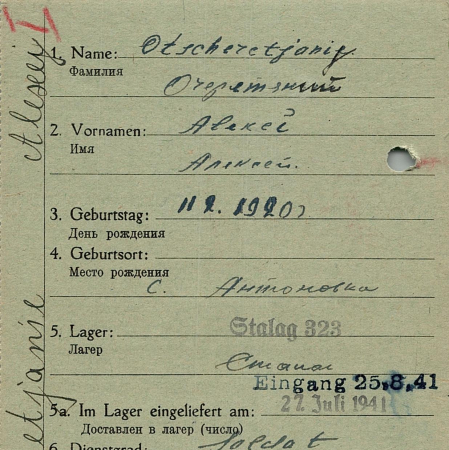 1. Name: Otscheretjanij
Фамилия
Очеретяний
2. Vornamen: Алексеj
Имя
Алексей.
3. Geburtstag: 11 2. 1920
День рождения
4. Geburtsort:
Место рождения
с. Антоновка
5. Lager: Stalag 323
Лагер
Сталаг
Eingang 25.8.41
5a. Im Lager eingeliefert am: 27. Juli 1941
Доставлен в лагер (число)
6. Dienstgrad: Soldat
Alexej
etjanie